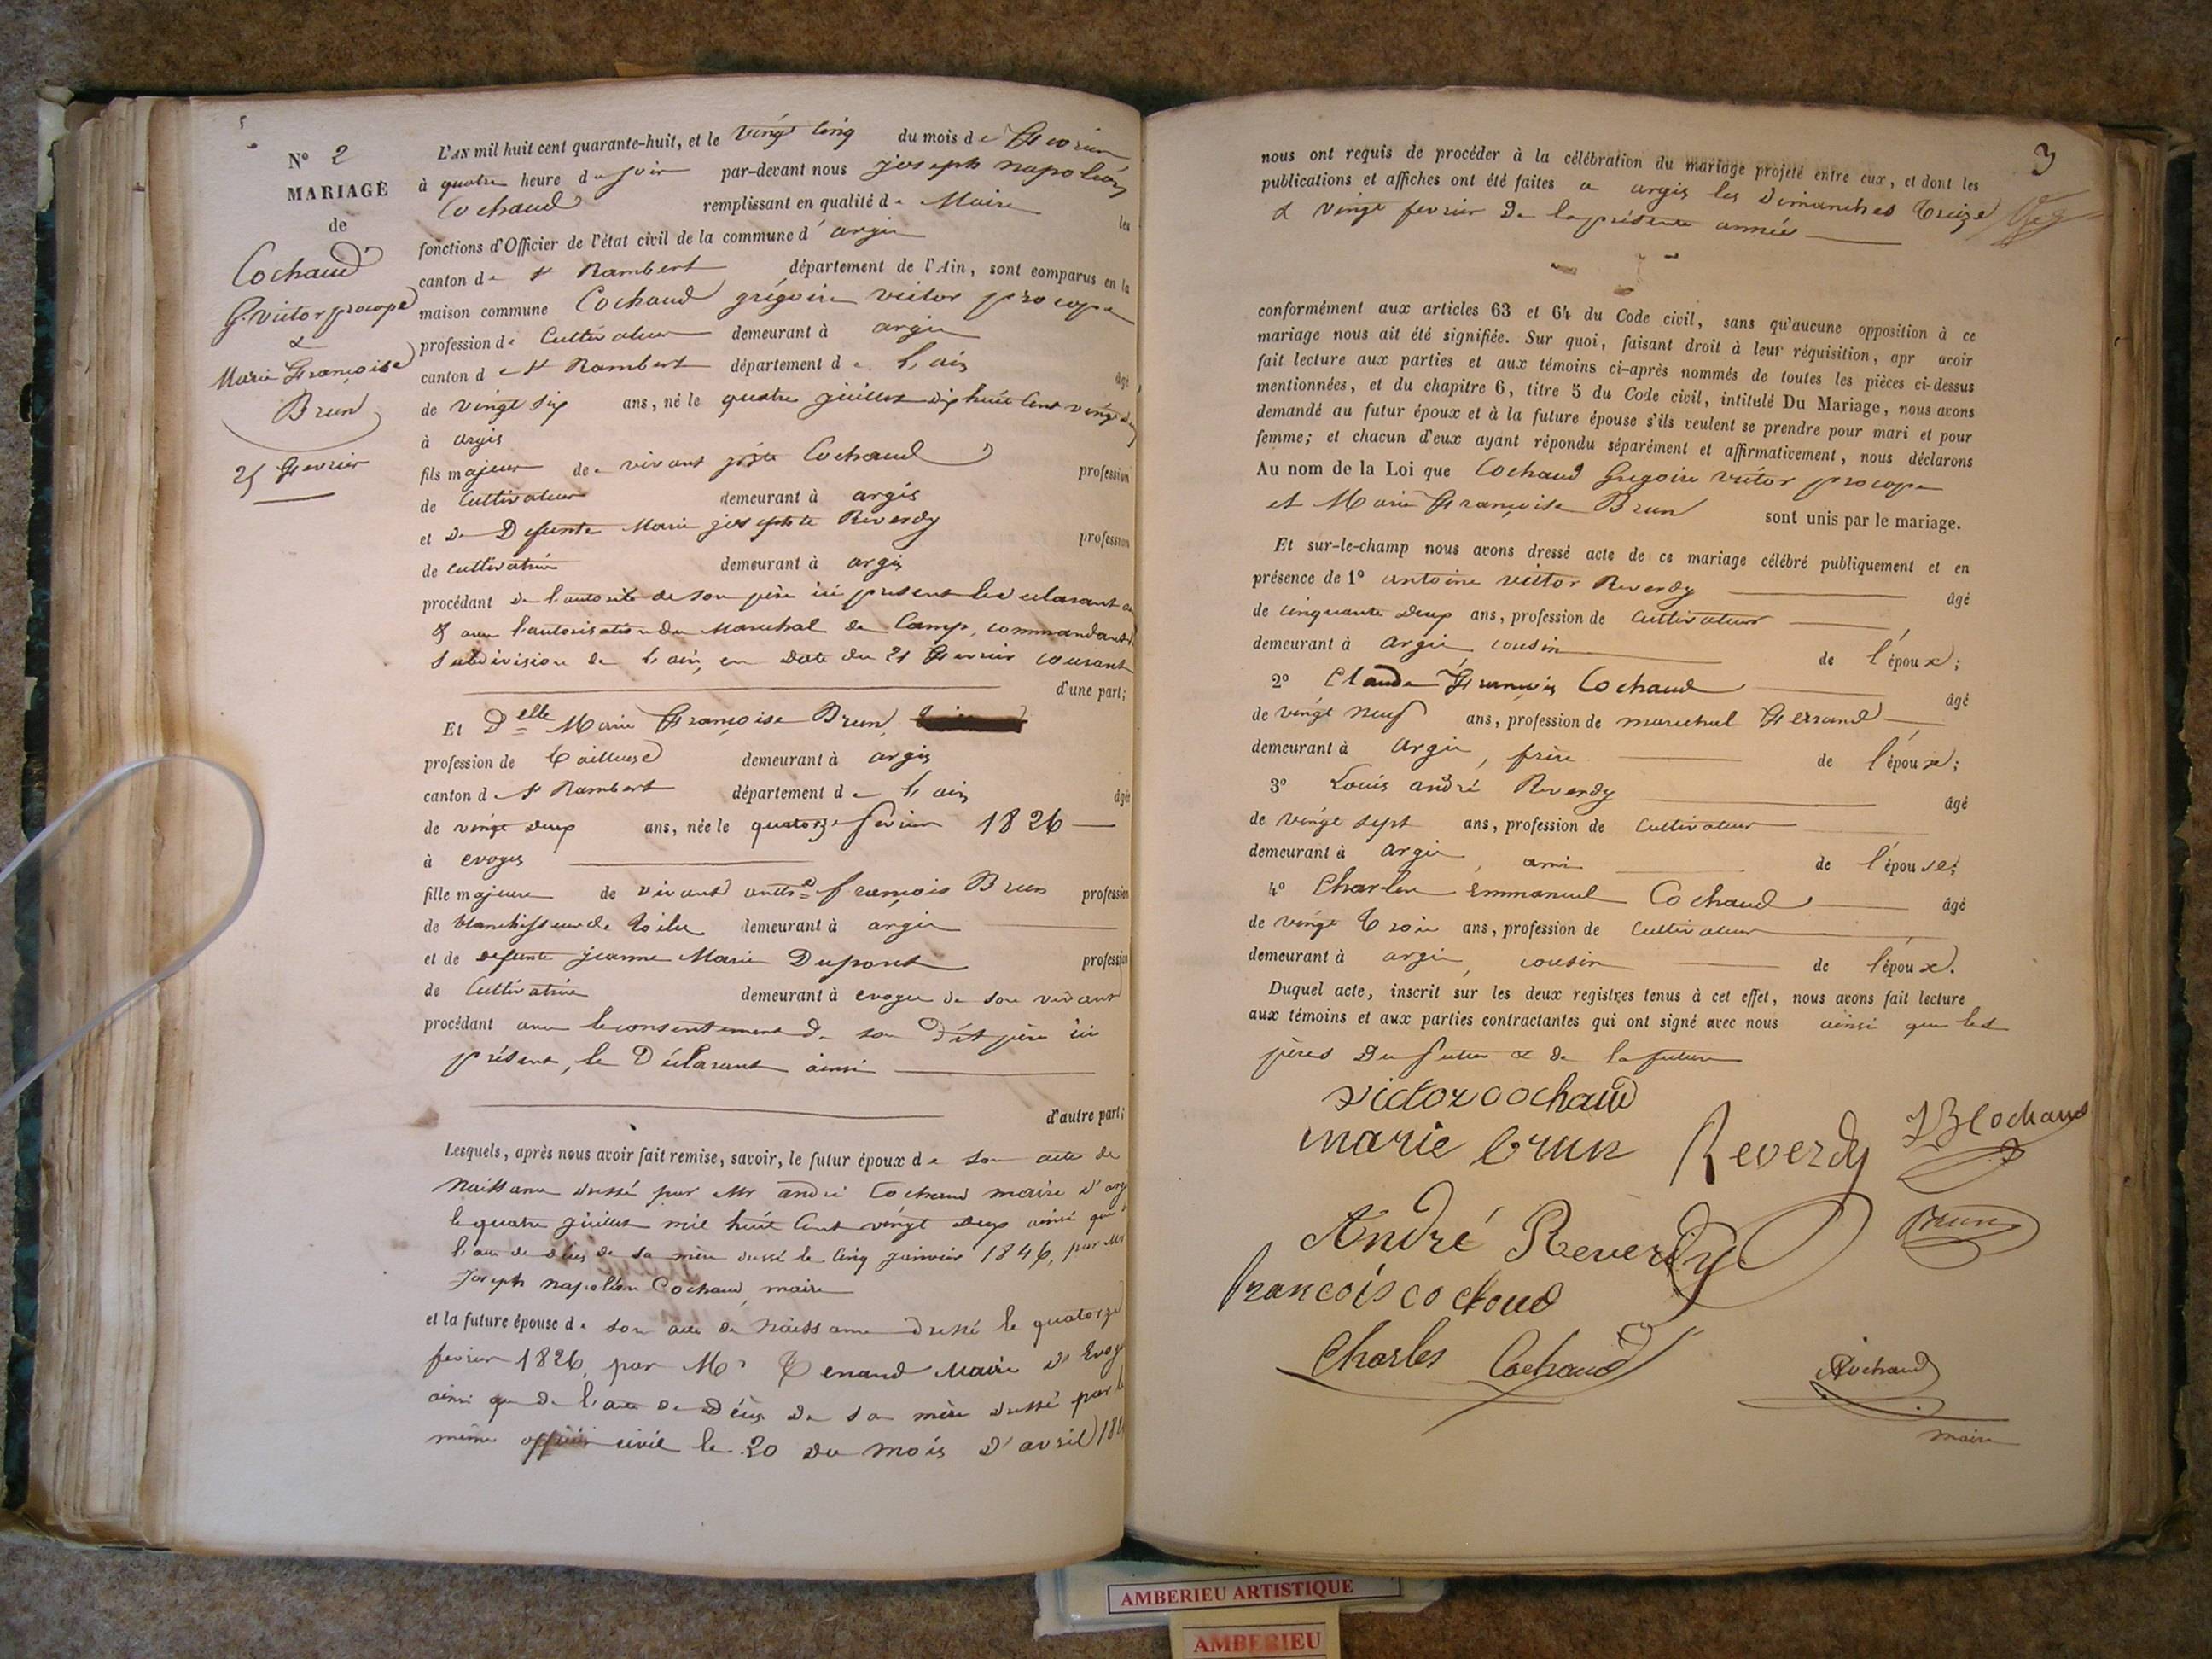 N° 2
MARIAGE
de
Cochaud
G. Victor procope
&
Marie Françoise
Brun
25 Fevrier
L'AN mil huit cent quarante-huit, et le vingt cinq du mois de Fevrier
à quatre heure du soir par-devant nous joseph napoléon
Cochaud remplissant en qualité de Maire les
fonctions d'Officier de l'état civil de la commune d'argis
canton de St Rambert département de l'Ain, sont comparus en la
maison commune Cochaud grégoire victor procope
profession de Cultivateur demeurant à argis
canton de St Rambert département de l'ain âgé
de vingt six ans, né le quatre juillet dix huit cent vingt deux
à argis
fils majeur de vivant Cochaud profession
de Cultivateur demeurant à argis
et de Defunte Marie josephte Reverdy profession
de cultivatrice demeurant à argis
procédant de l'autorité de son père ici présent le déclarant
& avec l'autorisation du Maréchal de Camp, commandant
Subdivision de l'ain, en date du 21 Fevrier courant
d'une part;
Et Delle Marie Françoise Brun
profession de Tailleuse demeurant à argis
canton de St Rambert département de l'ain âgée
de vingt deux ans, née le quatorze fevrier 1826
à evoges
fille majeure de vivant françois Brun profession
de blanchisseur de toiles demeurant à argis
et de defunte jeanne Marie Dupont profession
de Cultivatrice demeurant à evoges de son vivant
procédant avec le consentement de son dit père ici
présent, le Déclarant ainsi
d'autre part;
Lesquels, après nous avoir fait remise, savoir, le futur époux de son acte de
Naissance dressé par Mr andré Cochaud maire d'arg
le quatre juillet mil huit cent vingt deux ainsi que
l'acte de décès de sa mère dressé le cinq janvier 1846, par Mr
Joseph napoléon Cochaud, maire
et la future épouse de son acte de Naissance dressé le quatorze
fevrier 1826, par Mr Tenand Maire d'Evoge
ainsi que de l'acte de Décès de sa mère dressé par le
même officier civil le 20 du mois d'avril 18
3
nous ont requis de procéder à la célébration du mariage projeté entre eux, et dont les
publications et affiches ont été faites a argis les Dimanches treize
& vingt fevrier de la présente année
conformément aux articles 63 et 64 du Code civil, sans qu'aucune opposition à ce
mariage nous ait été signifiée. Sur quoi, faisant droit à leur réquisition, apr avoir
fait lecture aux parties et aux témoins ci-après nommés de toutes les pièces ci-dessus
mentionnées, et du chapitre 6, titre 5 du Code civil, intitulé Du Mariage, nous avons
demandé au futur époux et à la future épouse s'ils veulent se prendre pour mari et pour
femme; et chacun d'eux ayant répondu séparément et affirmativement, nous déclarons
Au nom de la Loi que Cochaud Gregoire victor procope
et Marie Françoise Brun sont unis par le mariage.
Et sur-le-champ nous avons dressé acte de ce mariage célébré publiquement et en
présence de 1° antoine victor Reverdy âgé
de cinquante deux ans, profession de Cultivateur
demeurant à argis, cousin de l'époux;
2° Claude François Cochaud âgé
de vingt neuf ans, profession de marechal Ferrand
demeurant à argis, frère de l'époux;
3° Louis andré Reverdy âgé
de vingt sept ans, profession de Cultivateur
demeurant à argis, ami de l'épouse;
4° Charles Emmanuel Cochaud âgé
de vingt trois ans, profession de Cultivateur
demeurant à argis, cousin de l'époux.
Duquel acte, inscrit sur les deux registres tenus à cet effet, nous avons fait lecture
aux témoins et aux parties contractantes qui ont signé avec nous ainsi que les
pères du futur & de la future
victor cochaud
marie brun Reverdy Cochaud
André Reverdy brun
francois cochaud
Charles Cochaud Cochaud
maire
AMBERIEU ARTISTIQUE
AMBERIEU